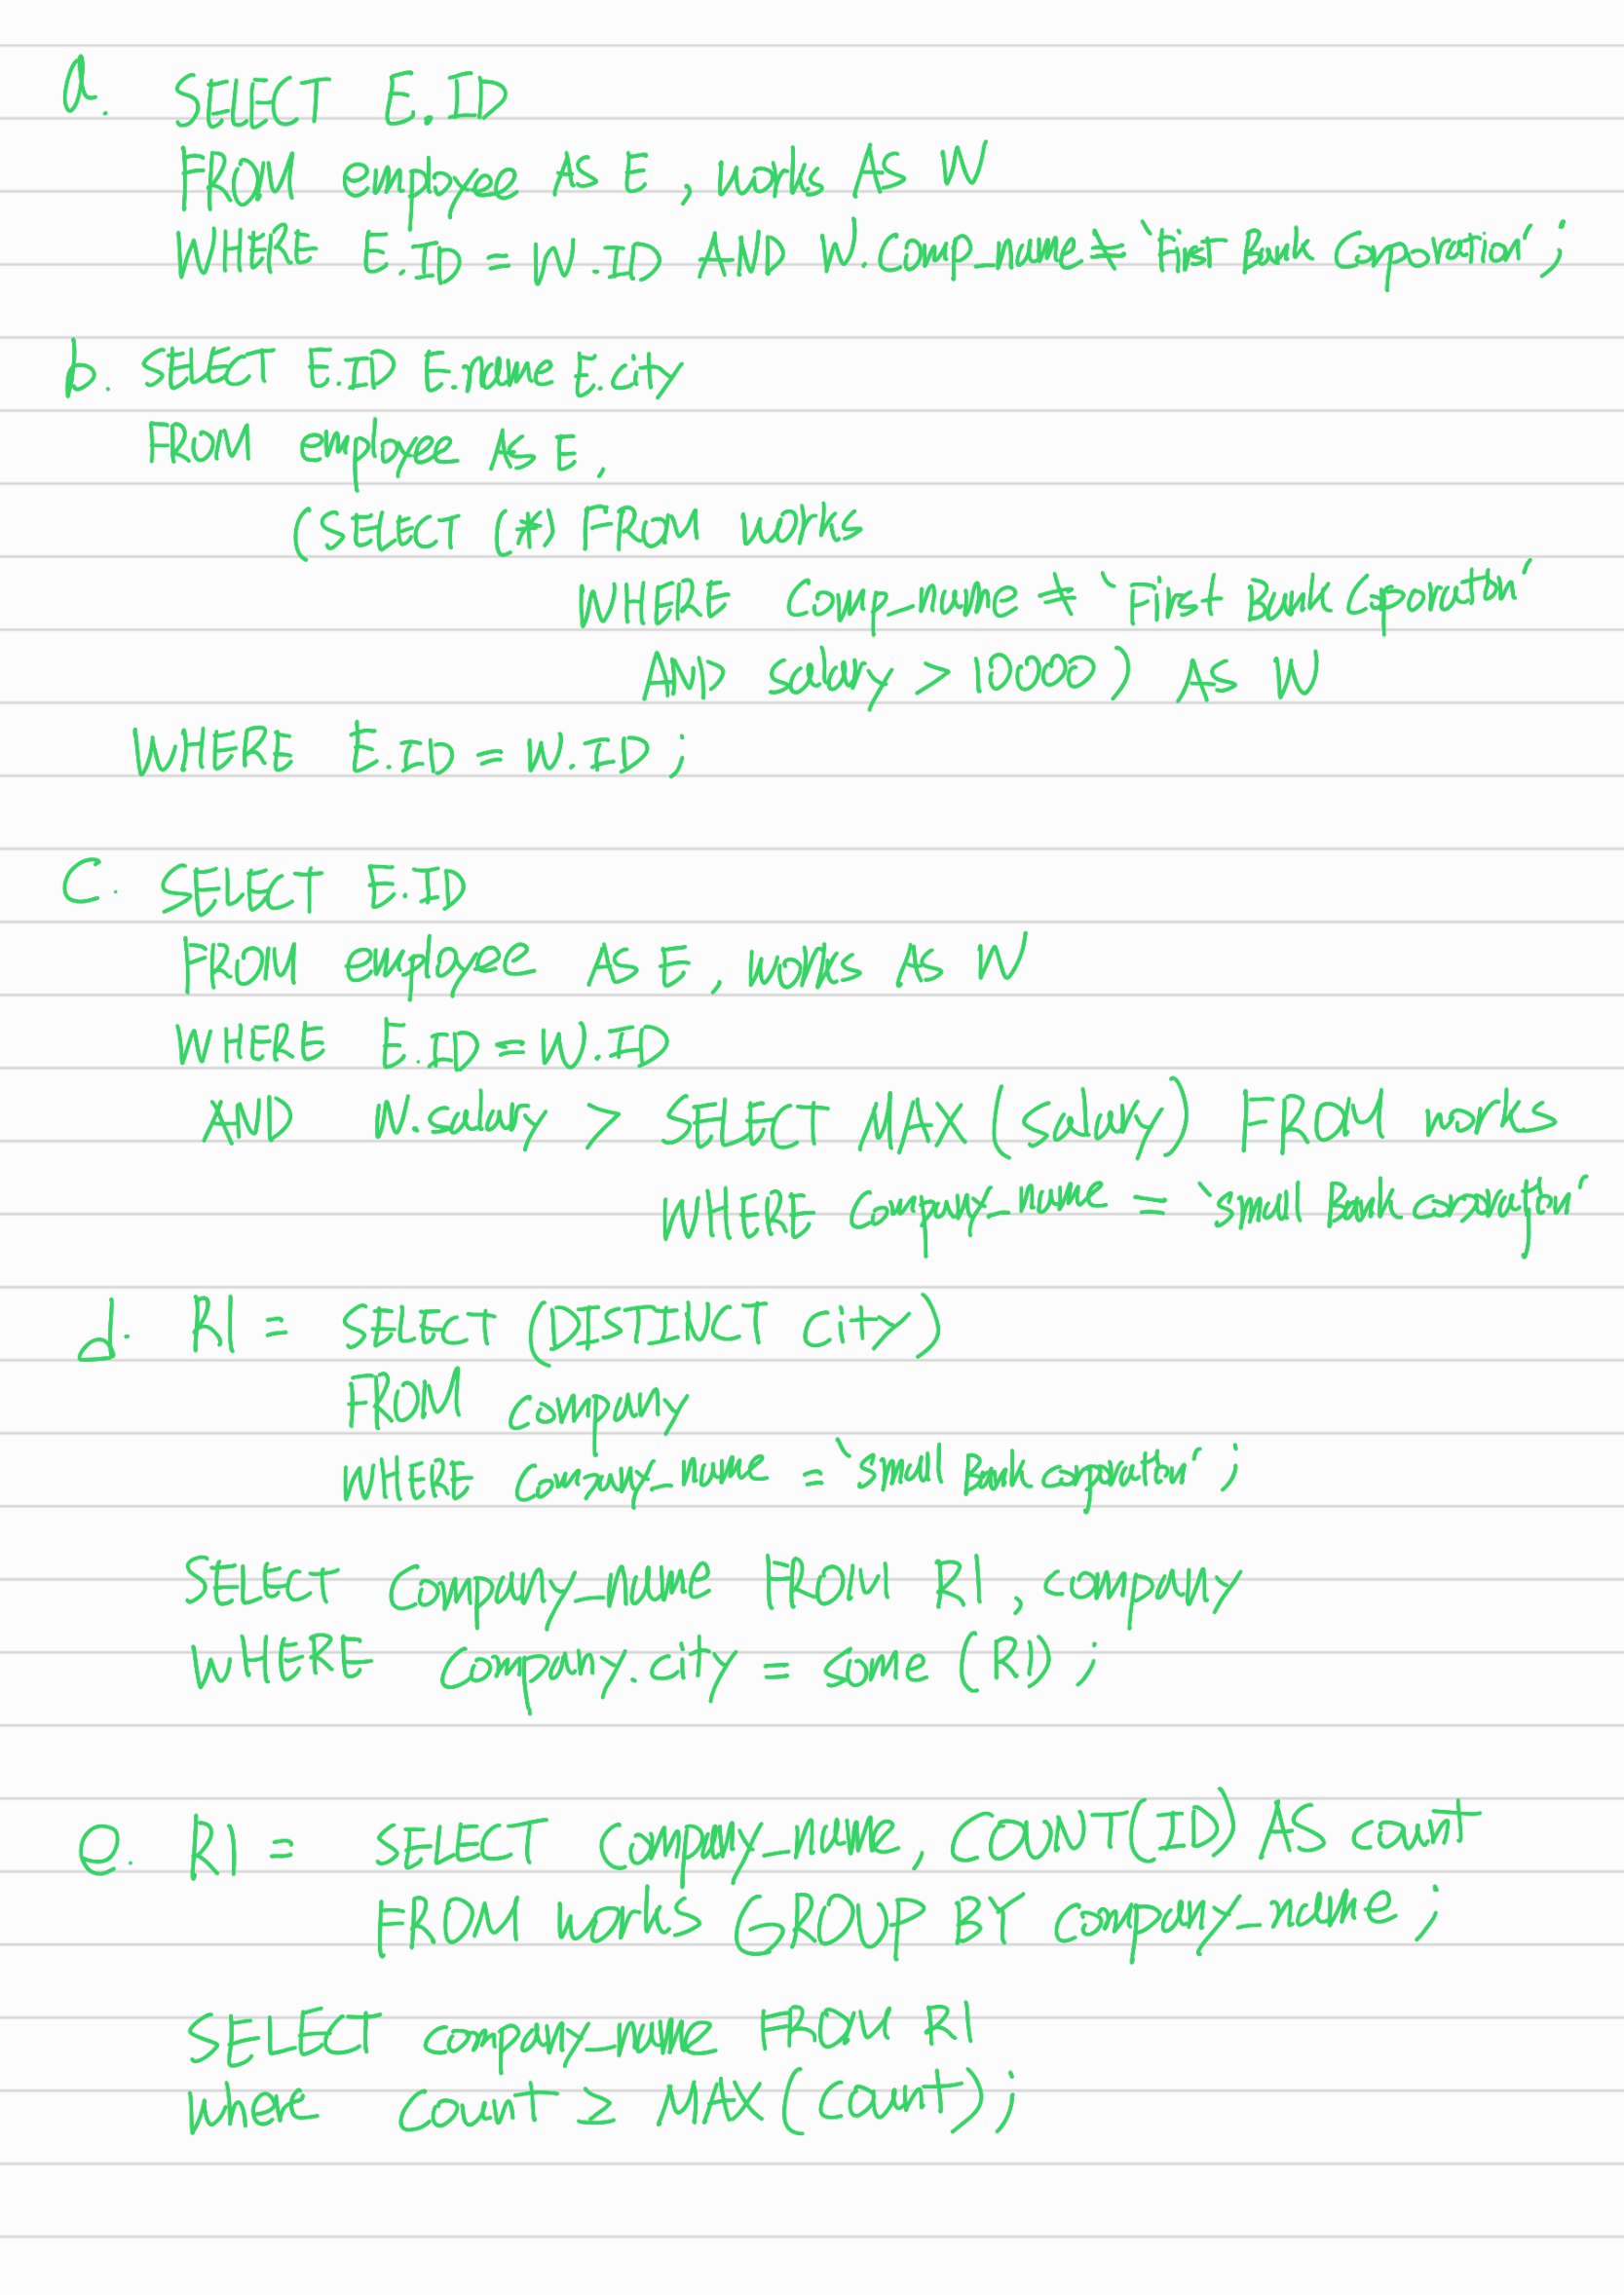 a. SELECT E.ID
FROM employee AS E, works AS W
WHERE E.ID = W.ID AND W.Comp_name ≠ 'First Bank Corporation';
b. SELECT E.ID E.name E.city
FROM employee AS E,
(SELECT (*) FROM works
WHERE Comp_name ≠ 'First Bank Coporation'
AND salary > 10000) AS W
WHERE E.ID = W.ID;
C. SELECT E.ID
FROM employee AS E, works AS W
WHERE E.ID = W.ID
AND W.salary > SELECT MAX(salary) FROM works
WHERE company_name = 'small Bank corporation'
d. R1 = SELECT (DISTINCT city)
FROM company
WHERE company_name = 'small Bank corporation';
SELECT company_name FROM R1, company
WHERE company.city = some (R1);
e. R1 = SELECT company_name, COUNT(ID) AS count
FROM works GROUP BY company_name;
SELECT company_name FROM R1
where count ≥ MAX(count);